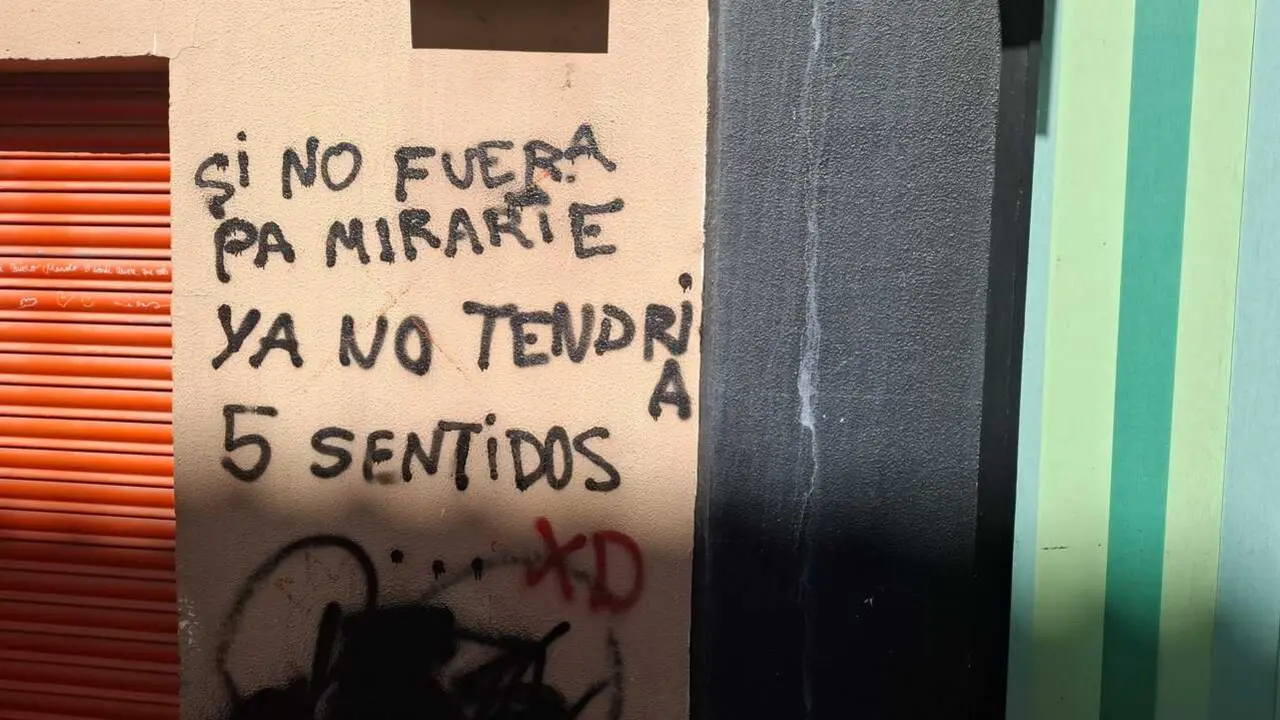 Si NO FUERA
PA MIRARTE
YA NO TENDRi
A
5 SENTiDOS
... XD